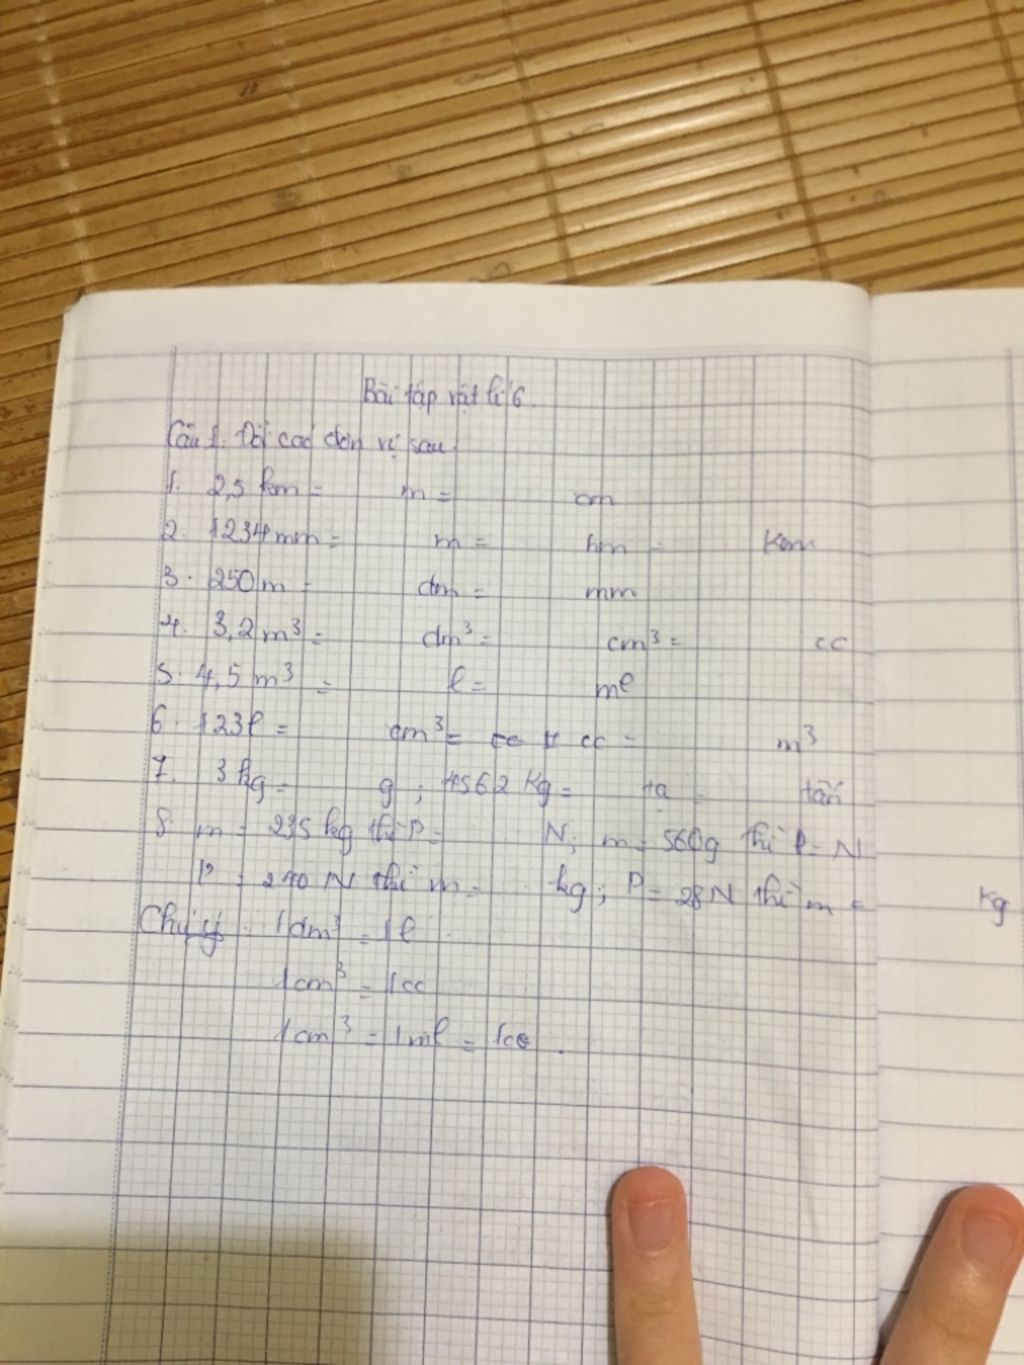 Bài tập vật lí 6.
Câu 1. Đổi các đơn vị sau
1. 2,5 km = m = cm
2. 1234 mm = m = hm = Km
3. 250 m = dm = mm
4. 3,2 m³ = dm³ = cm³ = cc
5. 4,5 m³ = l = ml
6. 123 l = cm³ = cc = m³
7. 3 kg = g ; 4562 Kg = tạ = tấn
8. m = 235 kg thì P = N; m = 560g thì P = N
P = 240 N thì m = kg ; P = 28 N thì m = Kg
Chú ý : 1 dm³ = 1 l .
1 cm³ = 1 cc
1 cm³ = 1 ml = 1 cc .